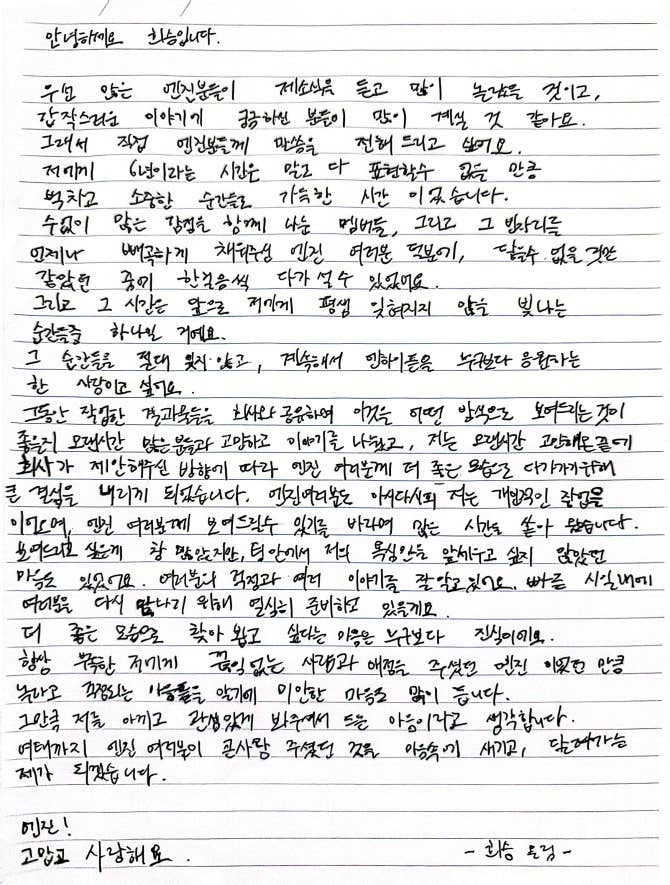 안녕하세요 희승입니다.
우선 많은 엔진분들이 제소식을 듣고 많이 놀랐을 것이고,
갑작스러운 이야기에 궁금하신 분들이 많이 계실 것 같아요.
그래서 직접 엔진분들께 말씀을 전해 드리고 싶어요.
저에게 6년이라는 시간은 말로 다 표현할수 없을 만큼
벅차고 소중한 순간들로 가득한 시간 이었습니다.
수없이 많은 감정을 함께 나눈 멤버들, 그리고 그 빈자리를
언제나 빼곡하게 채워주신 엔진 여러분 덕분에, 닿을수 없을 것만
같았던 꿈에 한걸음씩 다가 설 수 있었어요.
그리고 그 시간은 앞으로 저에게 평생 잊혀지지 않을 빛나는
순간들중 하나일 거예요.
그 순간들을 절대 잊지 않고, 계속해서 엔하이픈을 누구보다 응원하는
한 사람이고 싶어요.
그동안 작업한 결과물들을 회사와 공유하며 이것을 어떤 방식으로 보여드리는 것이
좋을지 오랜시간 많은 분들과 고민하고 이야기를 나눴고, 저는 오랜시간 고민해온 끝에
회사가 제안해주신 방향에 따라 엔진 여러분께 더 좋은 모습으로 다가가기 위해
큰 결심을 내리게 되었습니다. 엔진여러분도 아시다시피 저는 개인적인 작업을
이어오며, 엔진 여러분께 보여드릴수 있기를 바라며 많은 시간을 쏟아 왔습니다.
보여드리고 싶은게 참 많았지만, 팀 안에서 저의 욕심만을 앞세우고 싶지 않았던
마음도 있었어요. 여러분의 걱정과 여러 이야기를 잘 알고 있어요. 빠른 시일내에
여러분을 다시 만나기 위해 열심히 준비하고 있을게요.
더 좋은 모습으로 찾아 뵙고 싶다는 마음은 누구보다 진심이에요.
항상 부족한 저에게 끊임 없는 사랑과 애정을 주셨던 엔진 이었던 만큼
놀라고 걱정되는 마음들을 알기에 미안한 마음도 많이 듭니다.
그만큼 저를 아끼고 관심있게 봐주셔서 드는 마음이라고 생각합니다.
여태까지 엔진 여러분이 큰사랑 주셨던 것을 마음속에 새기고, 달려가는
제가 되겠습니다.
엔진!
고맙고 사랑해요.
- 희승 드림 -